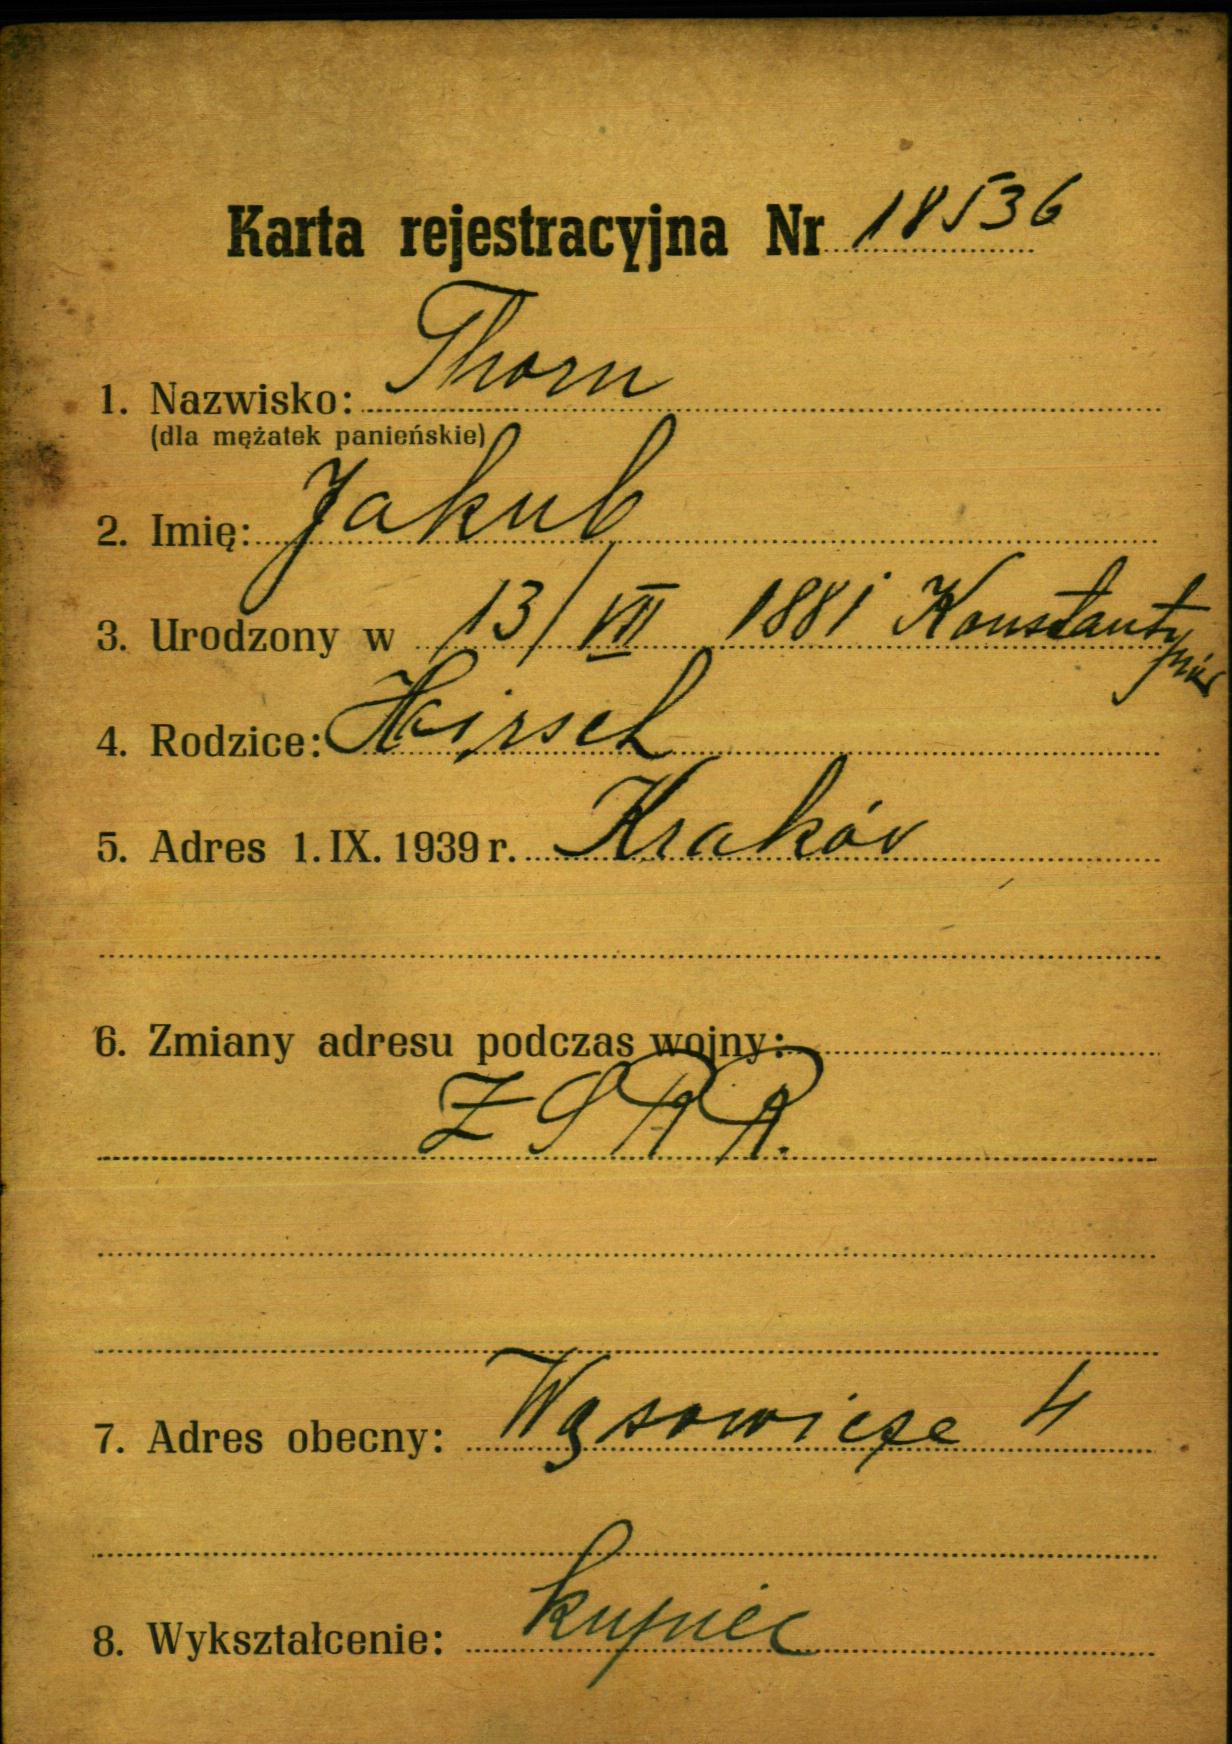 Karta rejestracyjna Nr 18536
1. Nazwisko: Thorn
(dla mężatek panieńskie)
2. Imię: Jakub
3. Urodzony w 13/VII 1881 Konstanty
4. Rodzice: Hirsch
5. Adres 1. IX. 1939 r. Kraków
6. Zmiany adresu podczas wojny:
ZSRR.
7. Adres obecny: Wąsowicza 4
8. Wykształcenie: kupiec